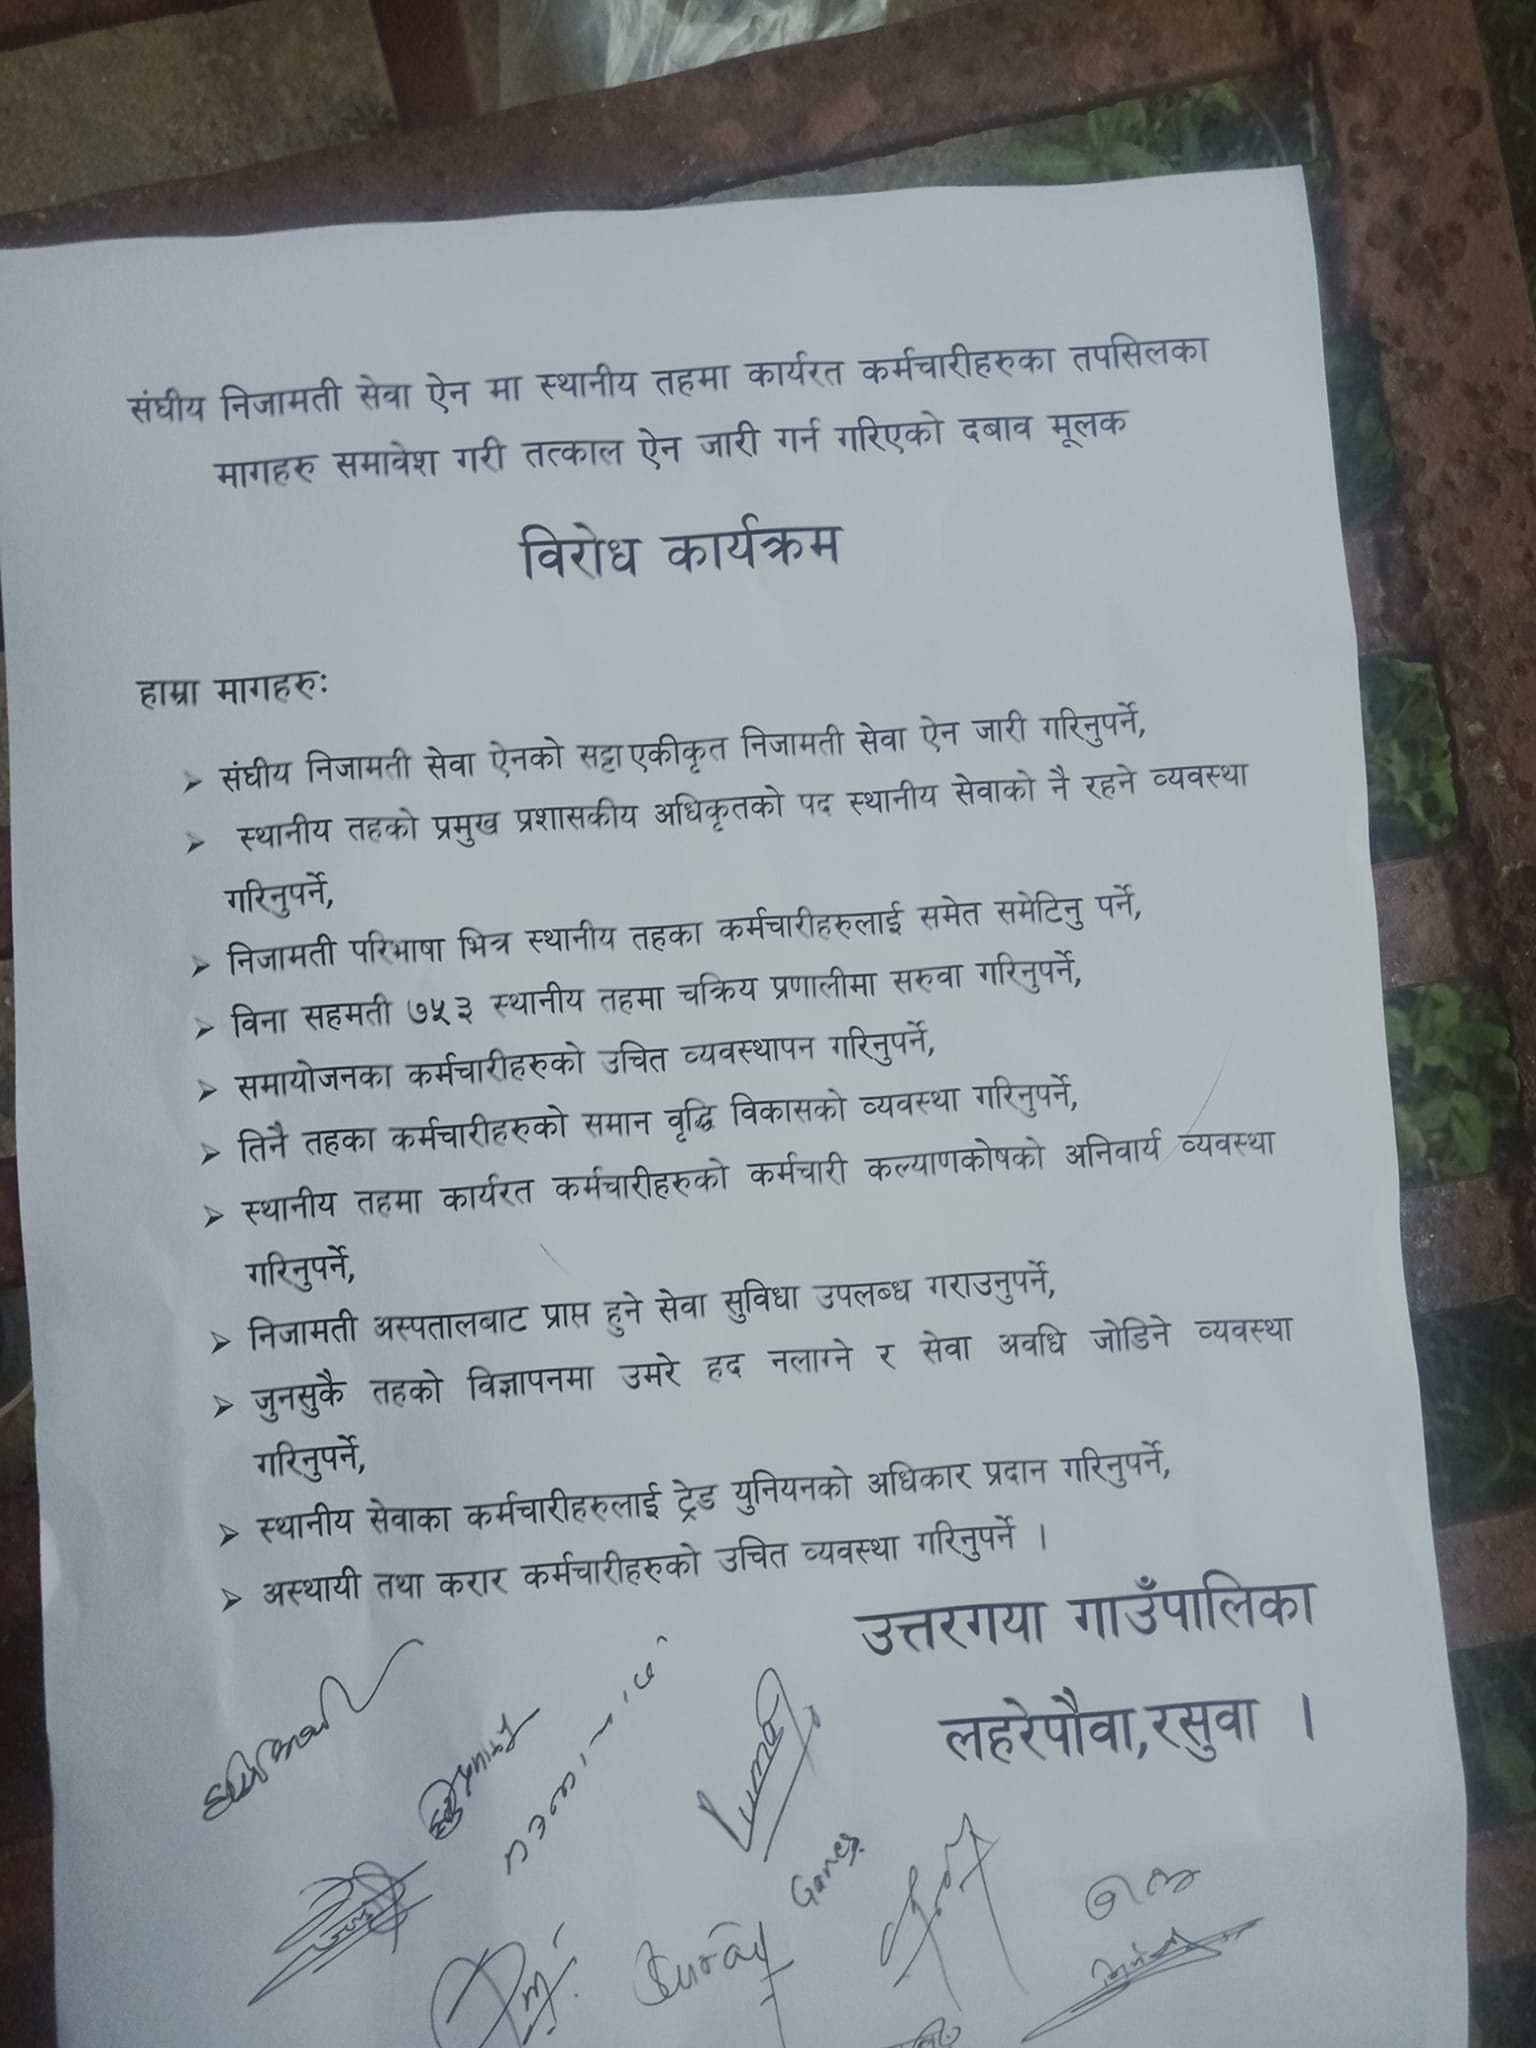 संघीय निजामती सेवा ऐन मा स्थानीय तहमा कार्यरत कर्मचारीहरुका तपसिलका
मागहरु समावेश गरी तत्काल ऐन जारी गर्न गरिएको दबाव मूलक
विरोध कार्यक्रम
हाम्रा मागहरुः
➢ संघीय निजामती सेवा ऐनको सट्टा एकीकृत निजामती सेवा ऐन जारी गरिनुपर्ने,
➢ स्थानीय तहको प्रमुख प्रशासकीय अधिकृतको पद स्थानीय सेवाको नै रहने व्यवस्था
गरिनुपर्ने,
➢ निजामती परिभाषा भित्र स्थानीय तहका कर्मचारीहरुलाई समेत समेटिनु पर्ने,
➢ विना सहमती ७५३ स्थानीय तहमा चक्रिय प्रणालीमा सरुवा गरिनुपर्ने,
➢ समायोजनका कर्मचारीहरुको उचित व्यवस्थापन गरिनुपर्ने,
➢ तिनै तहका कर्मचारीहरुको समान वृद्धि विकासको व्यवस्था गरिनुपर्ने,
➢ स्थानीय तहमा कार्यरत कर्मचारीहरुको कर्मचारी कल्याणकोषको अनिवार्य व्यवस्था
गरिनुपर्ने,
➢ निजामती अस्पतालबाट प्राप्त हुने सेवा सुविधा उपलब्ध गराउनुपर्ने,
➢ जुनसुकै तहको विज्ञापनमा उमरे हद नलाग्ने र सेवा अवधि जोडिने व्यवस्था
गरिनुपर्ने,
➢ स्थानीय सेवाका कर्मचारीहरुलाई ट्रेड युनियनको अधिकार प्रदान गरिनुपर्ने,
➢ अस्थायी तथा करार कर्मचारीहरुको उचित व्यवस्था गरिनुपर्ने ।
उत्तरगया गाउँपालिका
लहरेपौवा,रसुवा ।